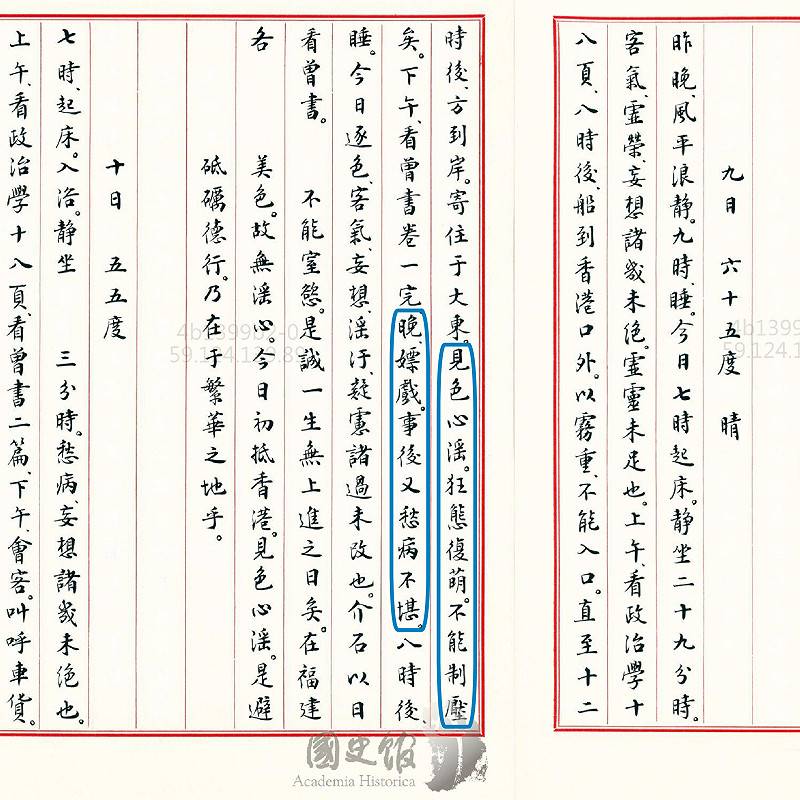 九日　六十五度　晴
昨晚、風平浪静。九時、睡。今日七時起床。静坐二十九分時。
客氣、虛榮、妄想諸幾未绝。虛靈未足也。上午、看政治學十
八頁、八時後、船到香港口外。以霧重、不能入口。直至十二
時後、方到岸。寄住于大東。見色心滛。狂態復萌。不能制壓
矣。下午、看曾書卷一完晚、嫖戲。事後又愁病不堪。八時後、
睡。今日逐色、客氣、妄想、滛汙、疑慮諸過未改也。介石以日
看曾書。　不能窒慾。是誠一生無上進之日矣。在福建
各　美色。故無滛心。今日初抵香港。見色心滛。是避
砥礪德行。乃在于繁華之地乎。
十日　五五度
七時、起床。入浴。静坐　三分時。愁病、妄想諸幾未绝也。
上午、看政治學十八頁、看曾書二篇、下午、會客。叫呼車貨。
國史館
Academia Historica